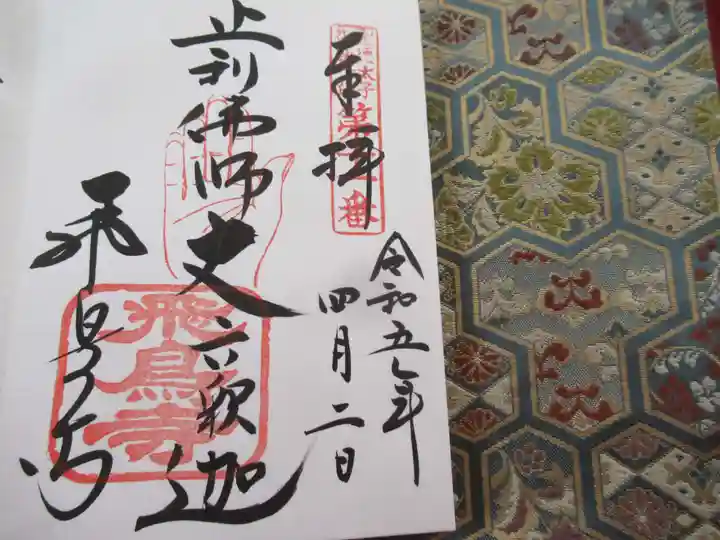 奉拝
太子
第十一番
令和五年
四月二日
止利佛師丈六釈迦
飛鳥寺
飛鳥寺